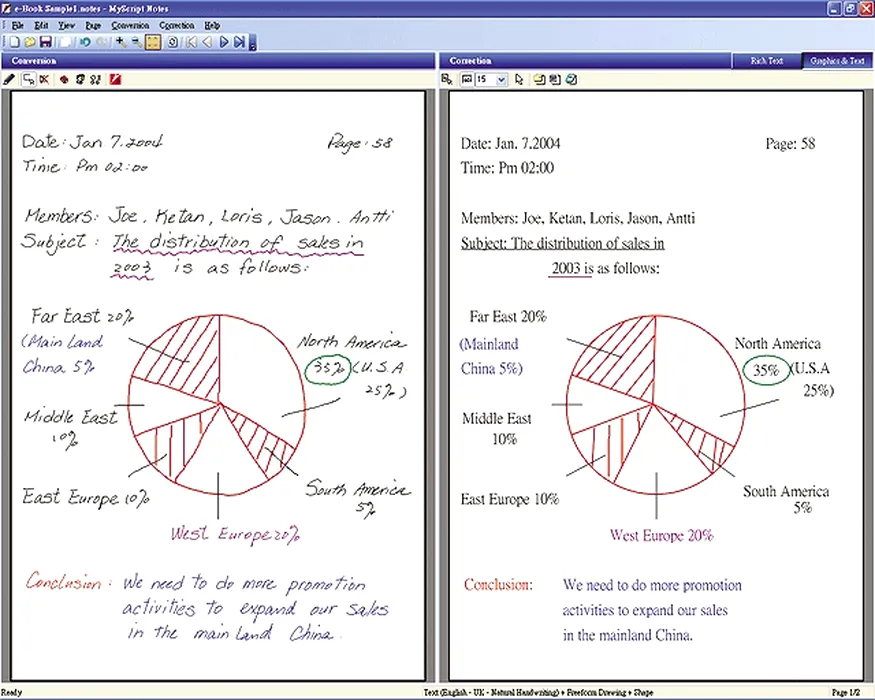 e-Book Sample1.notes - MyScript Notes
File Edit View Page Conversion Correction Help
Conversion
Date: Jan 7. 2004 Page: 58
Time: Pm 02:00
Members: Joe, Ketan, Loris, Jason. Antti
Subject: The distribution of sales in
2003 is as follows:
Far East 20%
(Main Land
China 5%
North America
35% (U.S.A
25%)
Middle East
10%
East Europe 10%
South America
5%
West Europe 20%
Conclusion: We need to do more promotion
activities to expand our sales
in the main land China.
Correction Rich Text Graphics & Text
15
Date: Jan. 7.2004 Page: 58
Time: Pm 02:00
Members: Joe, Ketan, Loris, Jason, Antti
Subject: The distribution of sales in
2003 is as follows:
Far East 20%
(Mainland
China 5%)
North America
35% (U.S.A
25%)
Middle East
10%
East Europe 10%
South America
5%
West Europe 20%
Conclusion: We need to do more promotion
activities to expand our sales
in the mainland China.
Ready Text (English - UK - Natural Handwriting) + Freeform Drawing + Shape Page 1/2